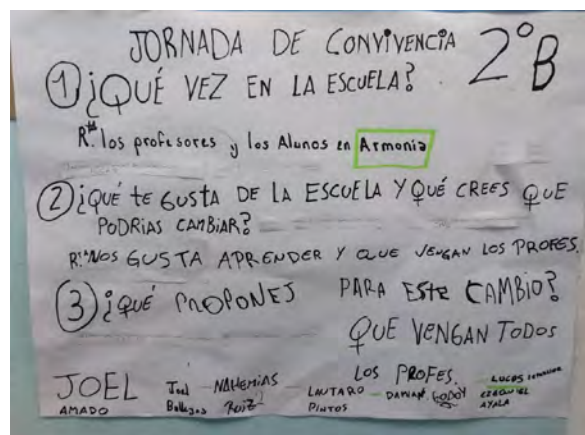 JORNADA DE CONVIVENCIA 2°B
1 ¿QUÉ VEZ EN LA ESCUELA?
R.ta los profesores y los Alunos en Armonia
2 ¿QUÉ te GUSTA DE LA ESCUELA Y QUÉ CREES QUE
PODRIAS CAMBIAR?
R.ta NOS GUSTA APRENDER Y QUE VENGAN LOS PROFES.
3 ¿QUÉ PROPONES PARA ESte CAMBIO?
QUE VENGAN TODOS
LOS PROFES.
JOEL AMADO
Joel
NAHEMIAS RUIZ
LAUTARO PINTOS
DAMIAN GODOY
LUCAS
EZEQUIEL AYALA